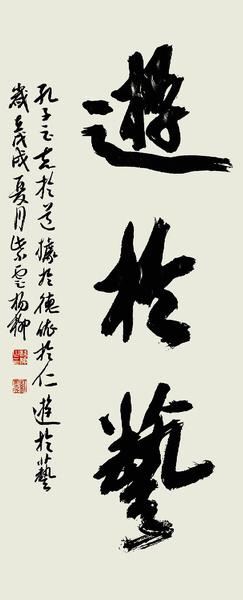 遊於藝
孔子云志於道據於德依於仁遊於藝
歲在戊戌夏月紫雲楊柳